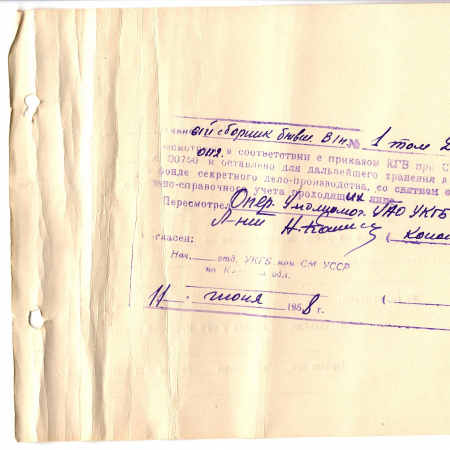 ый сборник бывш. В/н № 1 том 2
в соответствии с приказом КГБ при С
00750 и оставлено для дальнейшего хранения в
фонде секретного дело-производства, со снятием
но-справочного учета проходящих лиц.
Пересмотрел Опер. Уполномоч. УАО УКГБ
Л-нт
гласен:
Нач. отд. УКГБ при СМ УССР
по обл.
11 июня 1958 г.